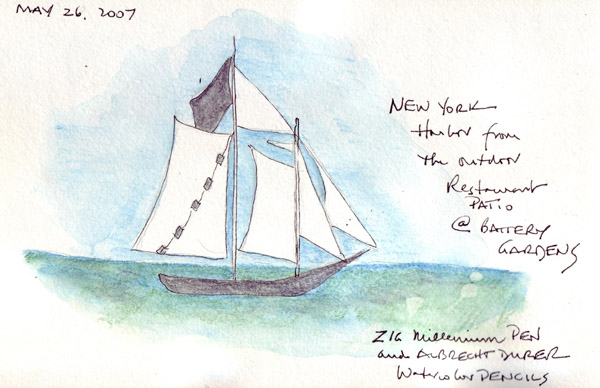 MAY 26, 2007
NEW YORK
Harbor from
the outdoor
Restaurant
PATIO
@ BATTERY
GARDENS
ZIG Millennium PEN
and ALBRECHT DURER
Watercolor PENCILS